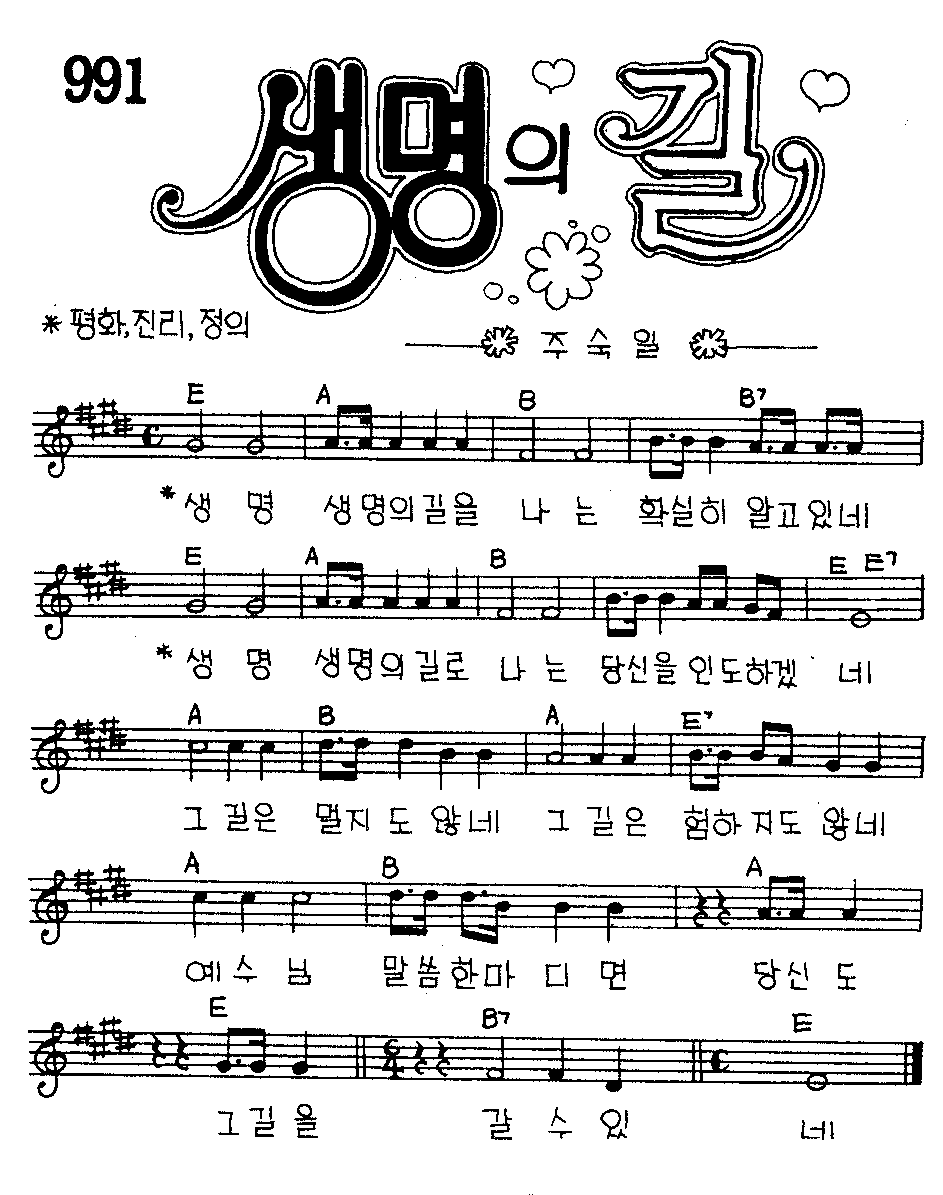 991
생명의 길
* 평화, 진리, 정의
주 숙 일
E A B B7
* 생 명 생명의길을 나 는 확실히 알고있네
E A B E E7
* 생 명 생명의길로 나 는 당신을 인도하겠 네
A B A E7
그 길은 멀지 도 않네 그 길 은 험하 지도 않네
A B A
예수 님 말씀한마 디 면 당신 도
E B7 E
6
4
그길 을 갈 수 있 네